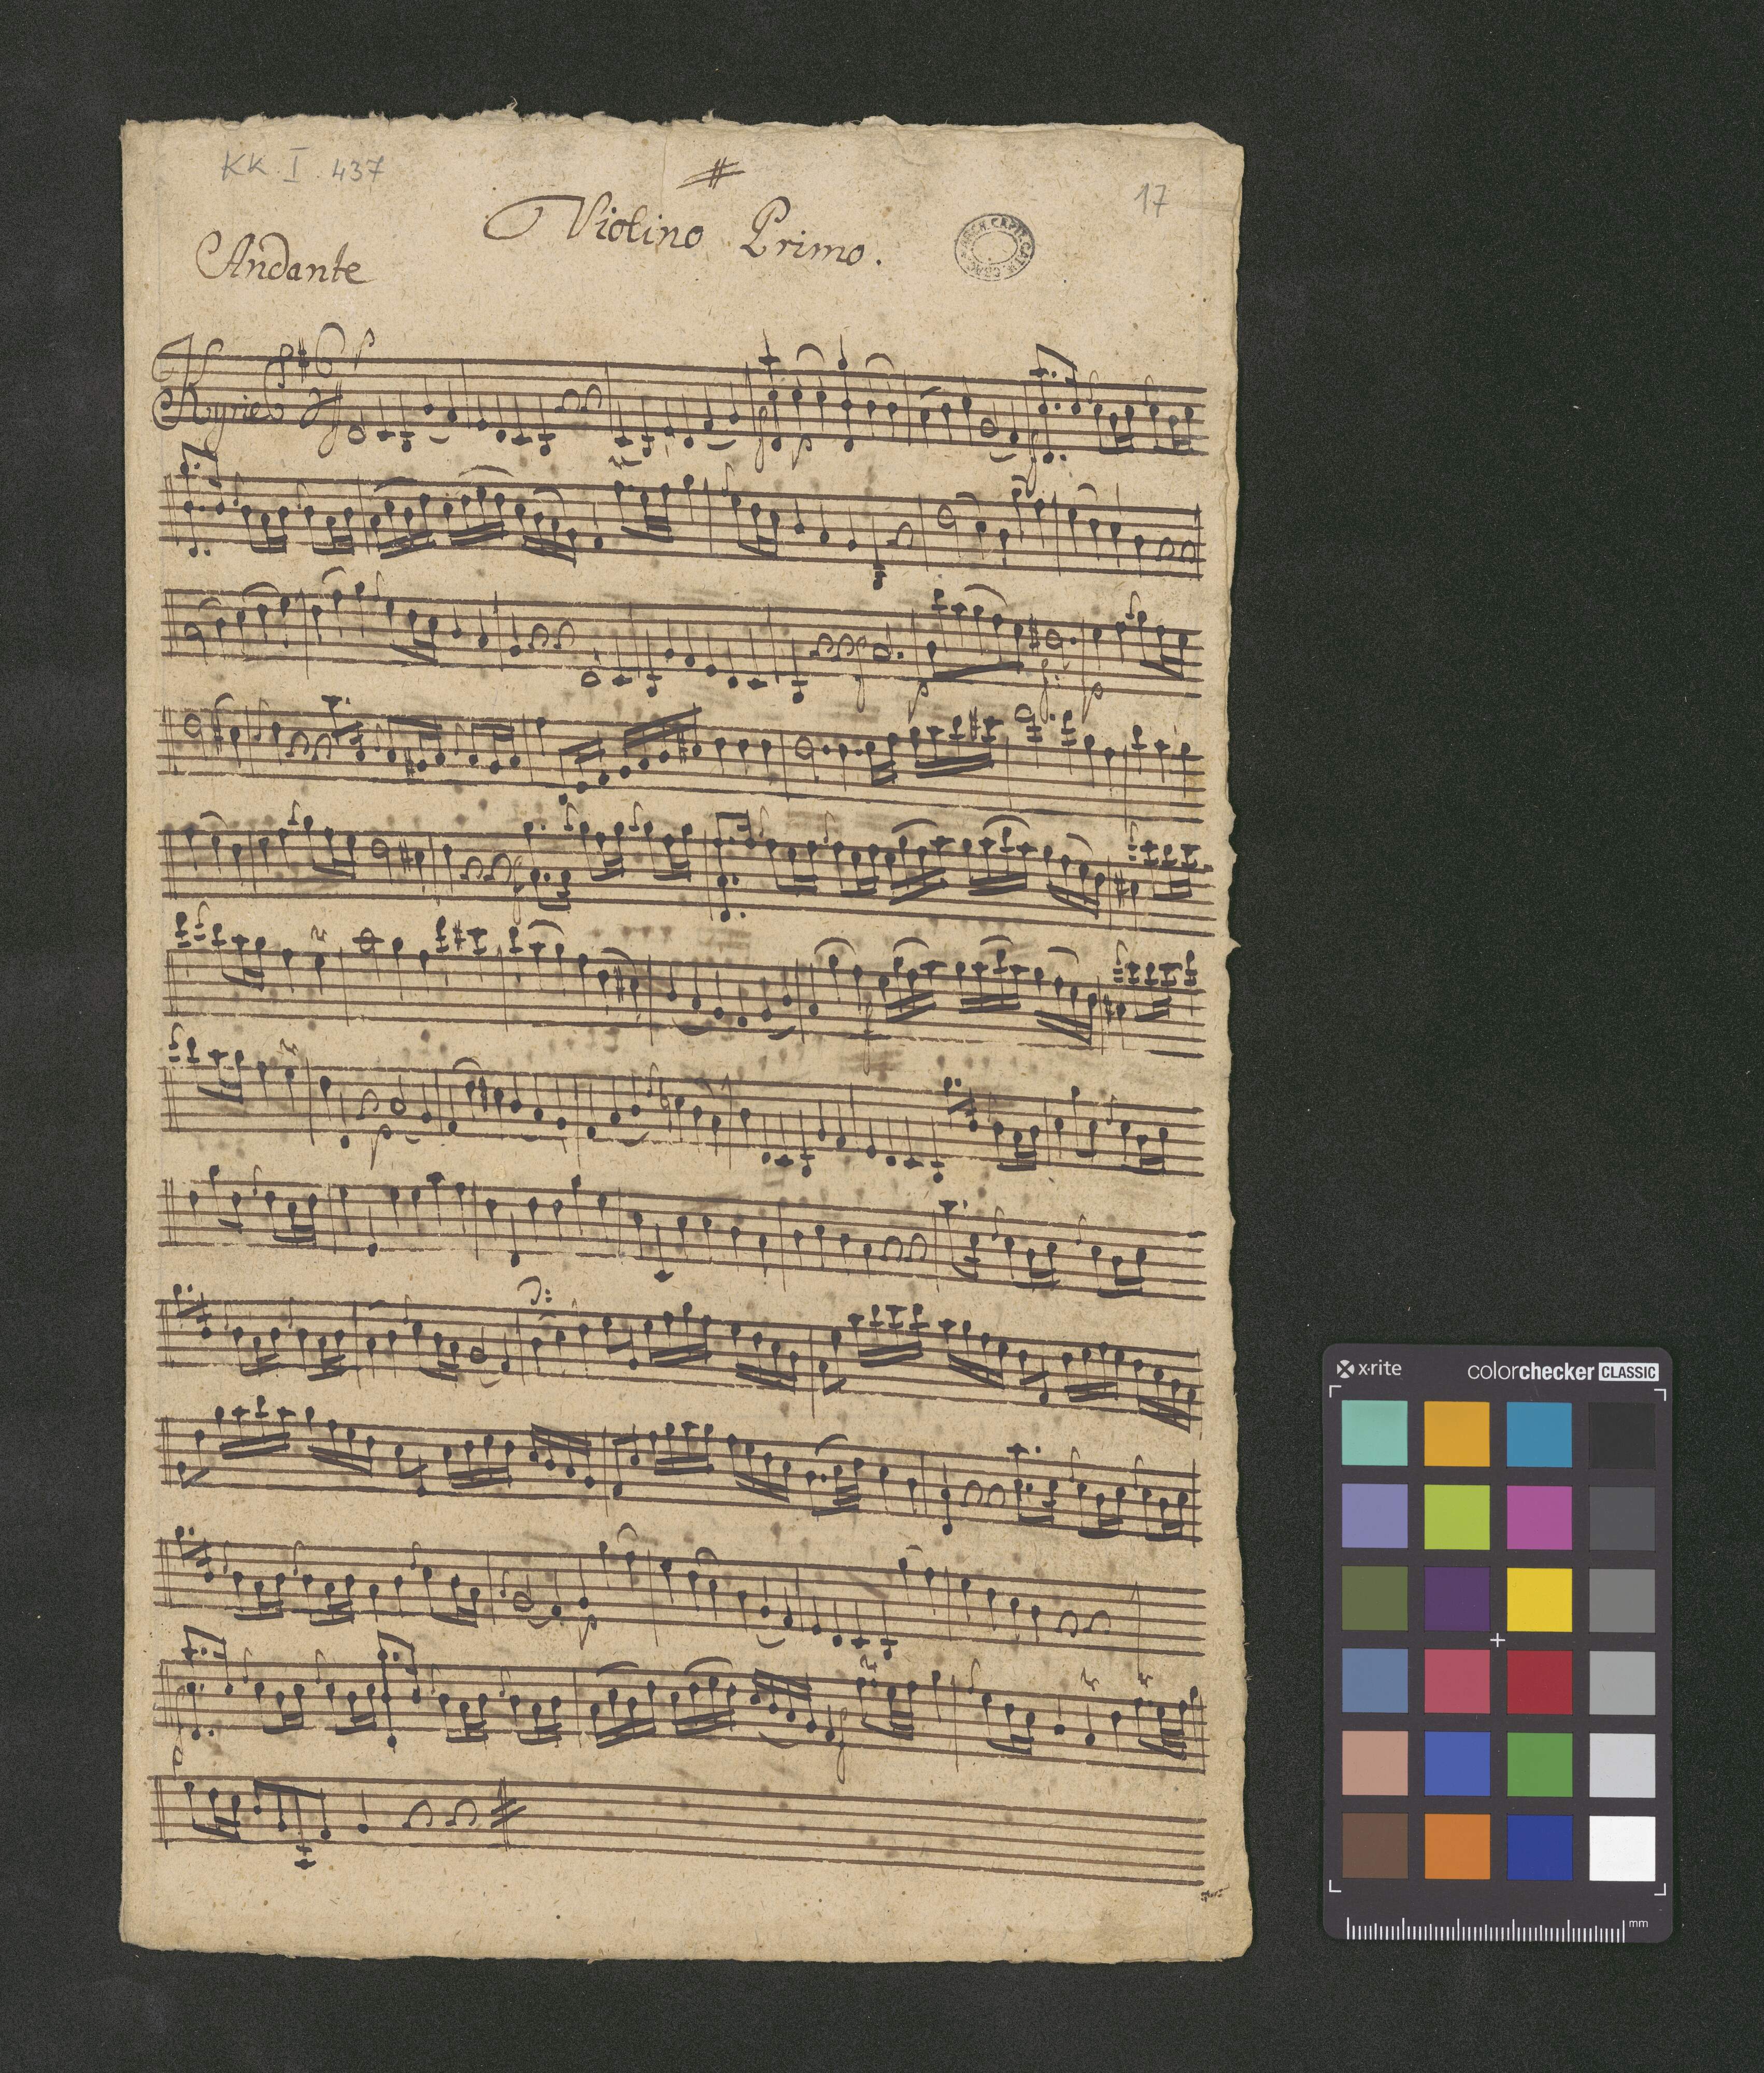 KK. I. 437
17
Violino Primo.
Andante
Kyrie
p
f
p
f
p
f
p
f
p
f
p
p
f
f
x·rite
colorchecker CLASSIC
mm